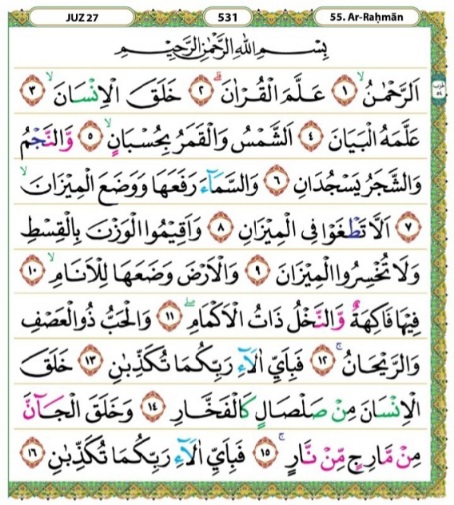 JUZ 27 531 55. Ar-Raḥmān
بِسْمِ اللّٰهِ الرَّحْمٰنِ الرَّحِيْمِ
اَلرَّحْمٰنُۙ ۝١ عَلَّمَ الْقُرْاٰنَۗ ۝٢ خَلَقَ الْاِنْسَانَۙ ۝٣
عَلَّمَهُ الْبَيَانَ ۝٤ اَلشَّمْسُ وَالْقَمَرُ بِحُسْبَانٍۙ ۝٥ وَّالنَّجْمُ
وَالشَّجَرُ يَسْجُدَانِ ۝٦ وَالسَّمَاۤءَ رَفَعَهَا وَوَضَعَ الْمِيْزَانَۙ
۝٧ اَلَّا تَطْغَوْا فِى الْمِيْزَانِ ۝٨ وَاَقِيْمُوا الْوَزْنَ بِالْقِسْطِ
وَلَا تُخْسِرُوا الْمِيْزَانَ ۝٩ وَالْاَرْضَ وَضَعَهَا لِلْاَنَامِۙ ۝١٠
فِيْهَا فَاكِهَةٌ وَّالنَّخْلُ ذَاتُ الْاَكْمَامِۖ ۝١١ وَالْحَبُّ ذُو الْعَصْفِ
وَالرَّيْحَانُۚ ۝١٢ فَبِاَيِّ اٰلَاۤءِ رَبِّكُمَا تُكَذِّبٰنِ ۝١٣ خَلَقَ
الْاِنْسَانَ مِنْ صَلْصَالٍ كَالْفَخَّارِ ۝١٤ وَخَلَقَ الْجَاۤنَّ
مِنْ مَّارِجٍ مِّنْ نَّارٍۚ ۝١٥ فَبِاَيِّ اٰلَاۤءِ رَبِّكُمَا تُكَذِّبٰنِ ۝١٦